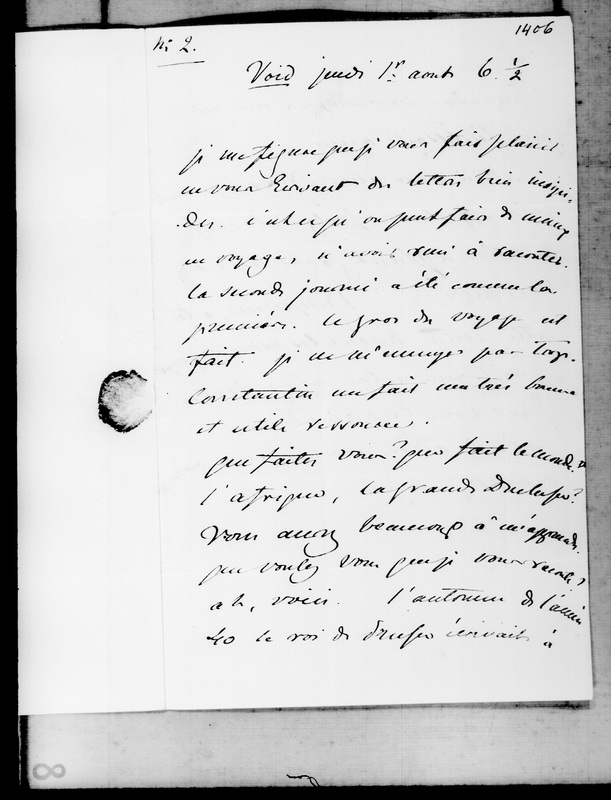 1406
N: 2.
Void jeudi 1r aout 6. 1/2
je me figure que je vous fais plaisir
en vous écrivant des lettres bien insipi-
des. c'est ce qu'on peut faire de mieux
en voyage, n'avoir rien à raconter.
la seconde journée a été comme la
première. le gros du voyage est
fait. je ne m'ennuye pas trop.
Constantin me fait une très bonne
et utile ressource.
que faites vous? que fait le monde,
l'afrique, la grande Duchesse?
Vous aurez beaucoup à m'apprendre.
que voulez vous que je vous raconte,
ah, voici. l'automne de l'année
40 le roi de Prusse écrivait à